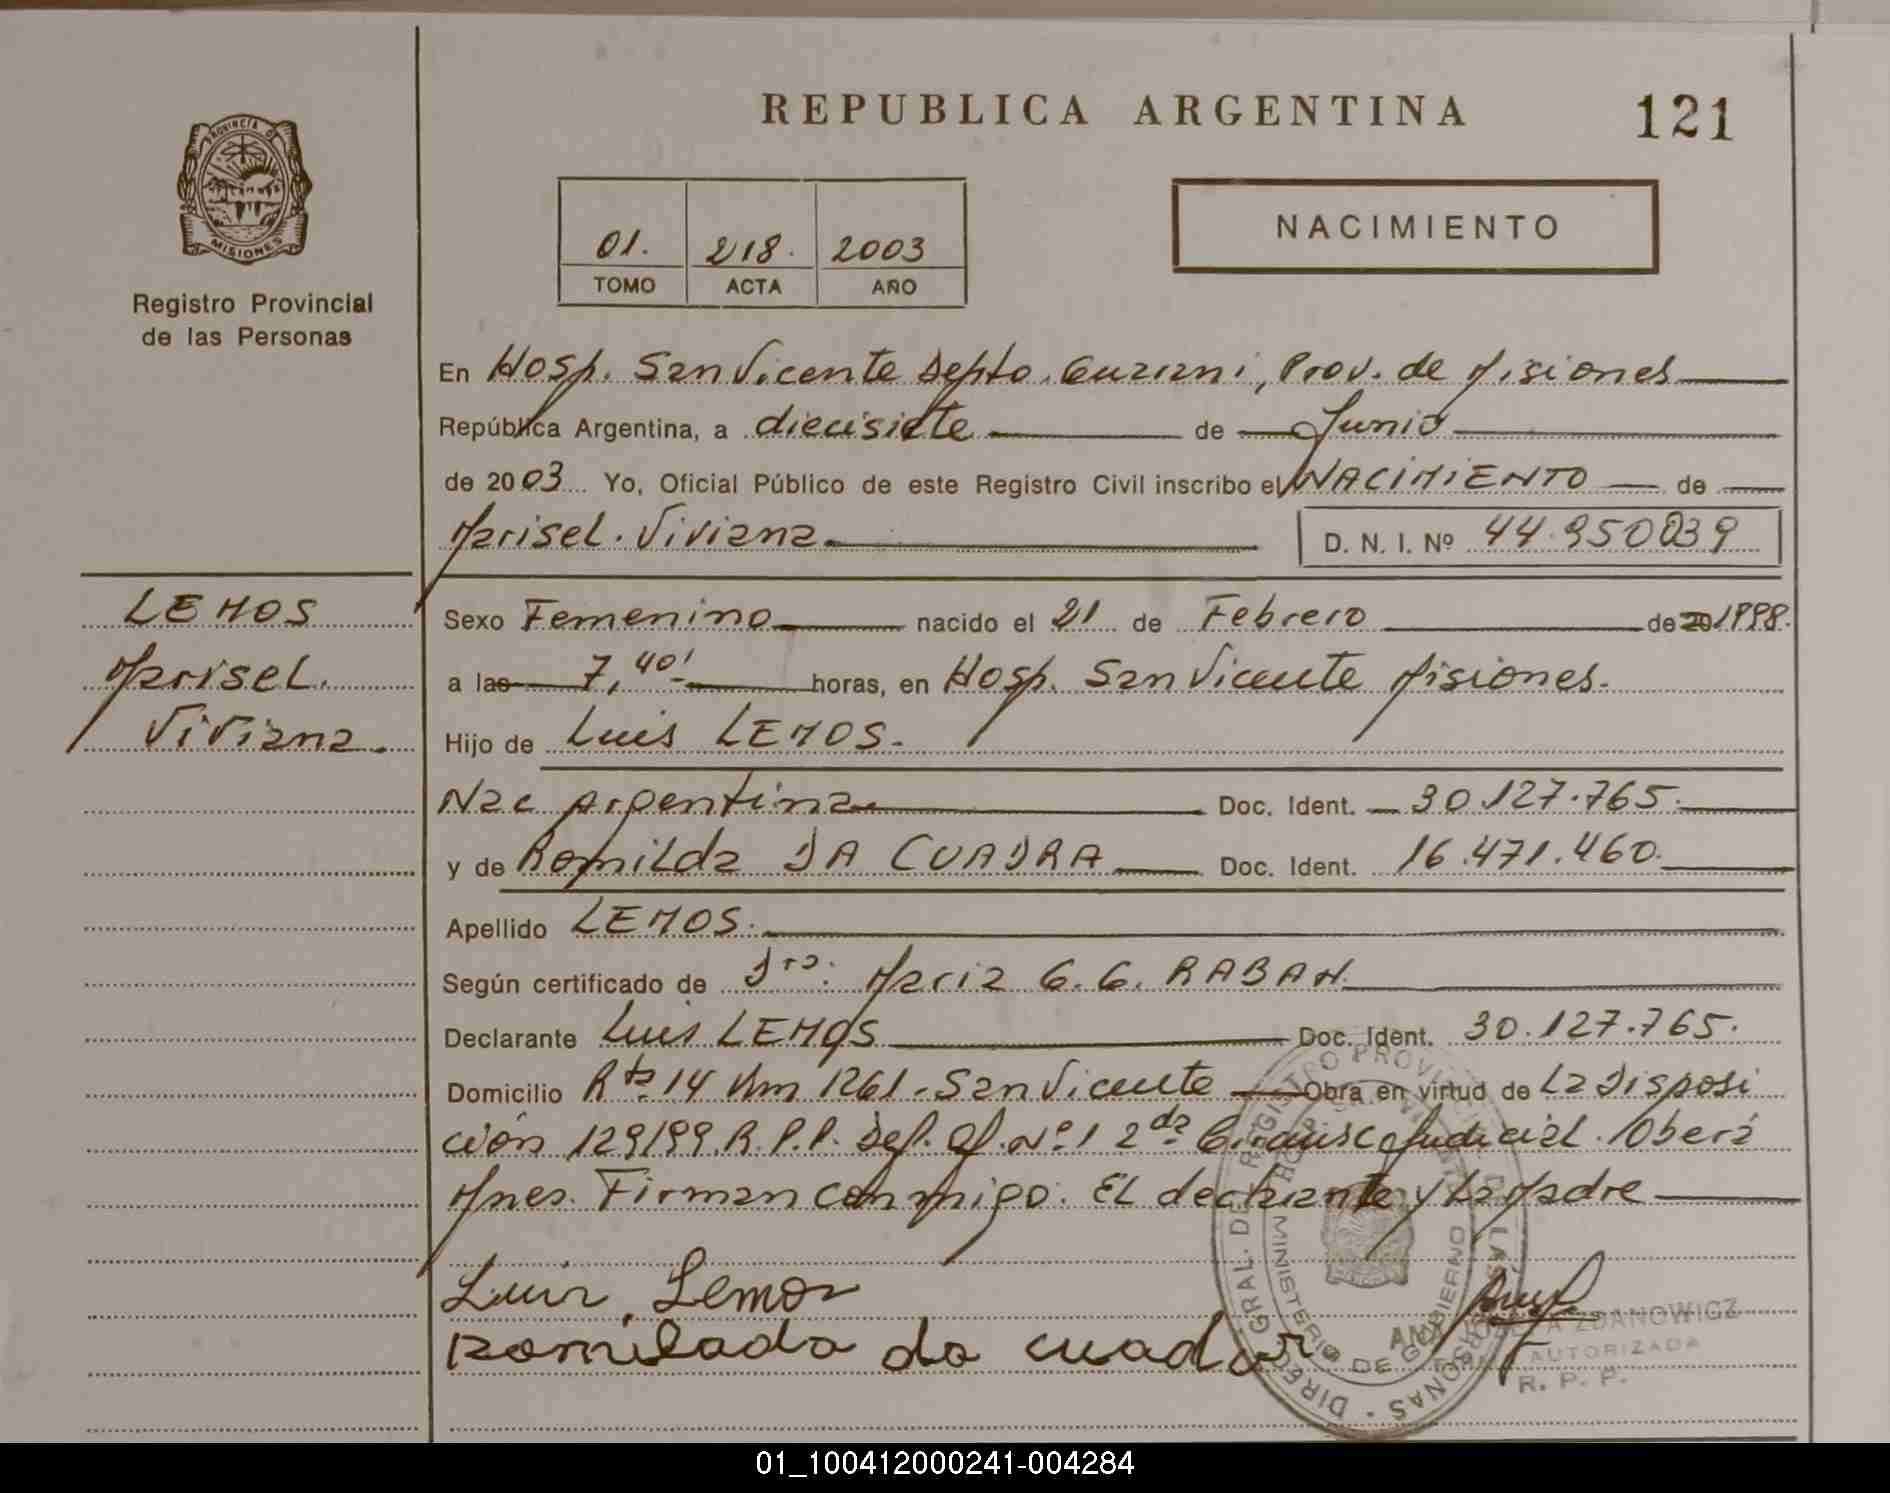 REPUBLICA ARGENTINA
121
PROVINCIA DE
MISIONES
Registro Provincial
de las Personas
01. 218. 2003
TOMO ACTA AÑO
NACIMIENTO
En Hosp. San Vicente Depto. Guarani, Prov. de Misiones
República Argentina, a diecisiete de Junio
de 2003 Yo, Oficial Público de este Registro Civil inscribo el NACIMIENTO de
Marisel. Viviana
D. N. I. Nº 44.950039
LEMOS
Marisel.
Viviana.
Sexo Femenino nacido el 21 de Febrero de 20 1998.
a las 7,40' horas, en Hosp. San Vicente Misiones.
Hijo de Luis LEMOS.
Nac Argentina Doc. Ident. 30.127.765.
y de Romilda DA CUADRA Doc. Ident. 16.471.460.
Apellido LEMOS.
Según certificado de Dra: Maria G. G. RABAH.
Declarante Luis LEMOS Doc. Ident. 30.127.765.
Domicilio Rta 14 Km 1261. San Vicente Obra en virtud de La Disposi
ción 129/99. R.P.P. Def. Of. Nº 1 2da Circunsc Judicial. Oberá
Mnes. Firman conmigo: El declarante y La Madre
Luis Lemos
Romilada da cuadra
DIREC. GRAL. DE REGISTRO PROVINCIAL DE LAS PERSONAS
MINISTERIO DE GOBIERNO
ZDANOWICZ
AUTORIZADA
R. P. P.
01_100412000241-004284